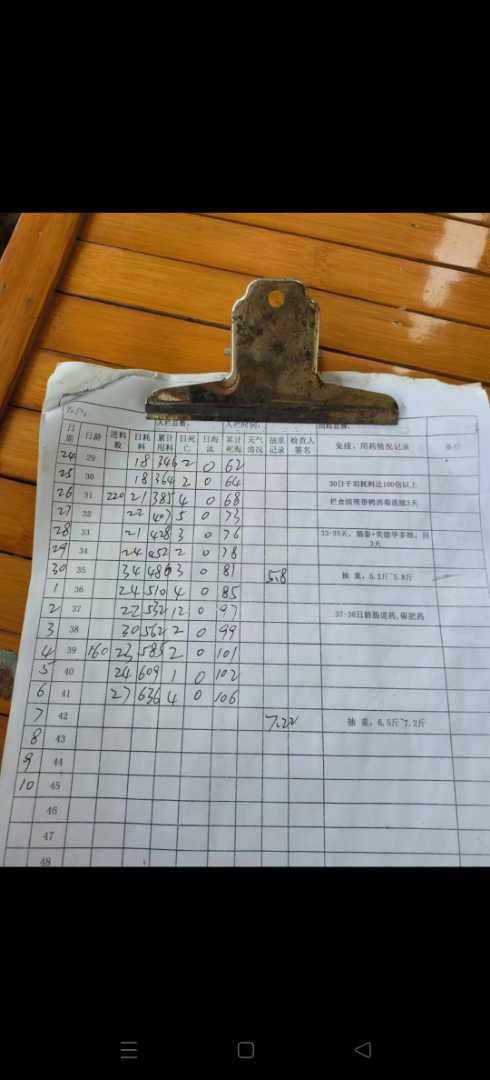 入栏总数: 入栏时间:
日期 日龄 进料数 日耗料 累计用料 日死亡 日淘汰 累计死淘 天气情况 抽重记录 检查人签名 免疫、用药情况记录 备注
24 29 18 346 2 0 62
25 30 18 364 2 0 64 30日千羽耗料达100包以上
26 31 220 21 385 4 0 68
27 32 22 407 5 0 73
28 33 21 428 3 0 76
29 34 24 452 2 0 78
30 35 34 486 3 0 81 5.8 抽 重:5.2斤~5.8斤
1 36 24 510 4 0 85
2 37 22 532 12 0 97
3 38 30 562 2 0 99
4 39 160 23 585 2 0 101
5 40 24 609 1 0 102
6 41 27 636 4 0 106
7 42 7.22 抽 重:6.5斤~7.2斤
8 43
9 44
10 45
46
47
48